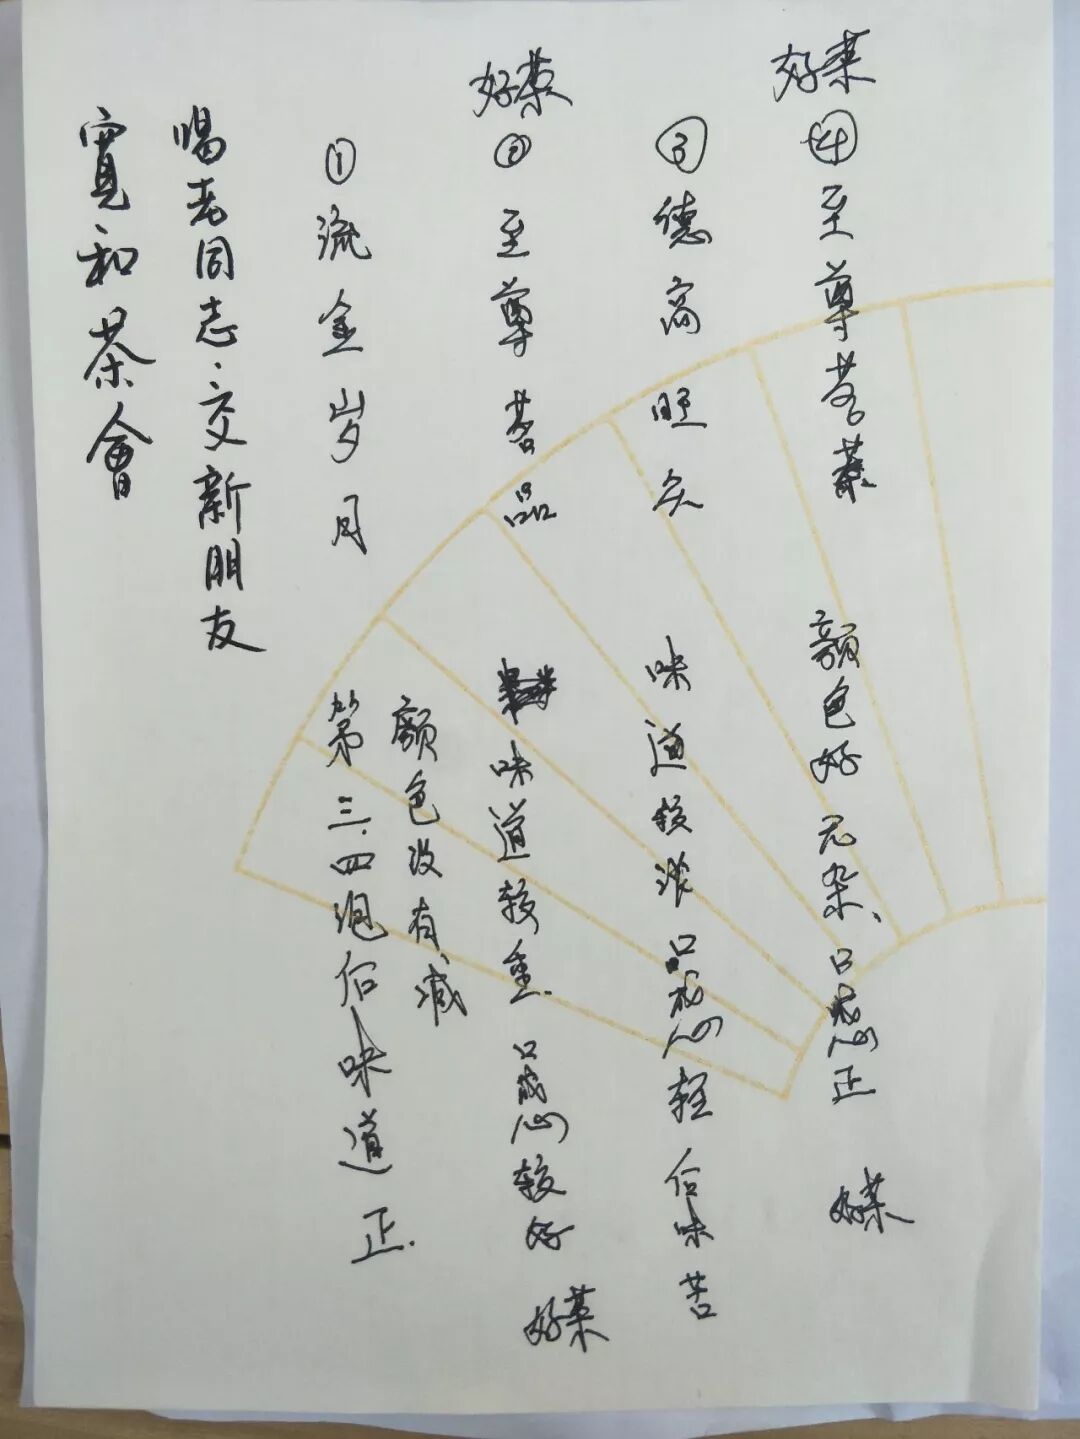 寬和茶會
喝老同志·交新朋友
①流金岁月
第三.四泡后味道正.
颜色没有减
好茶
②至尊茗品
味道较重.口感较好
好茶
③德高旺久
味道较浓口感轻后味苦
好茶
④至尊茗茶
颜色好无杂、口感正
好茶